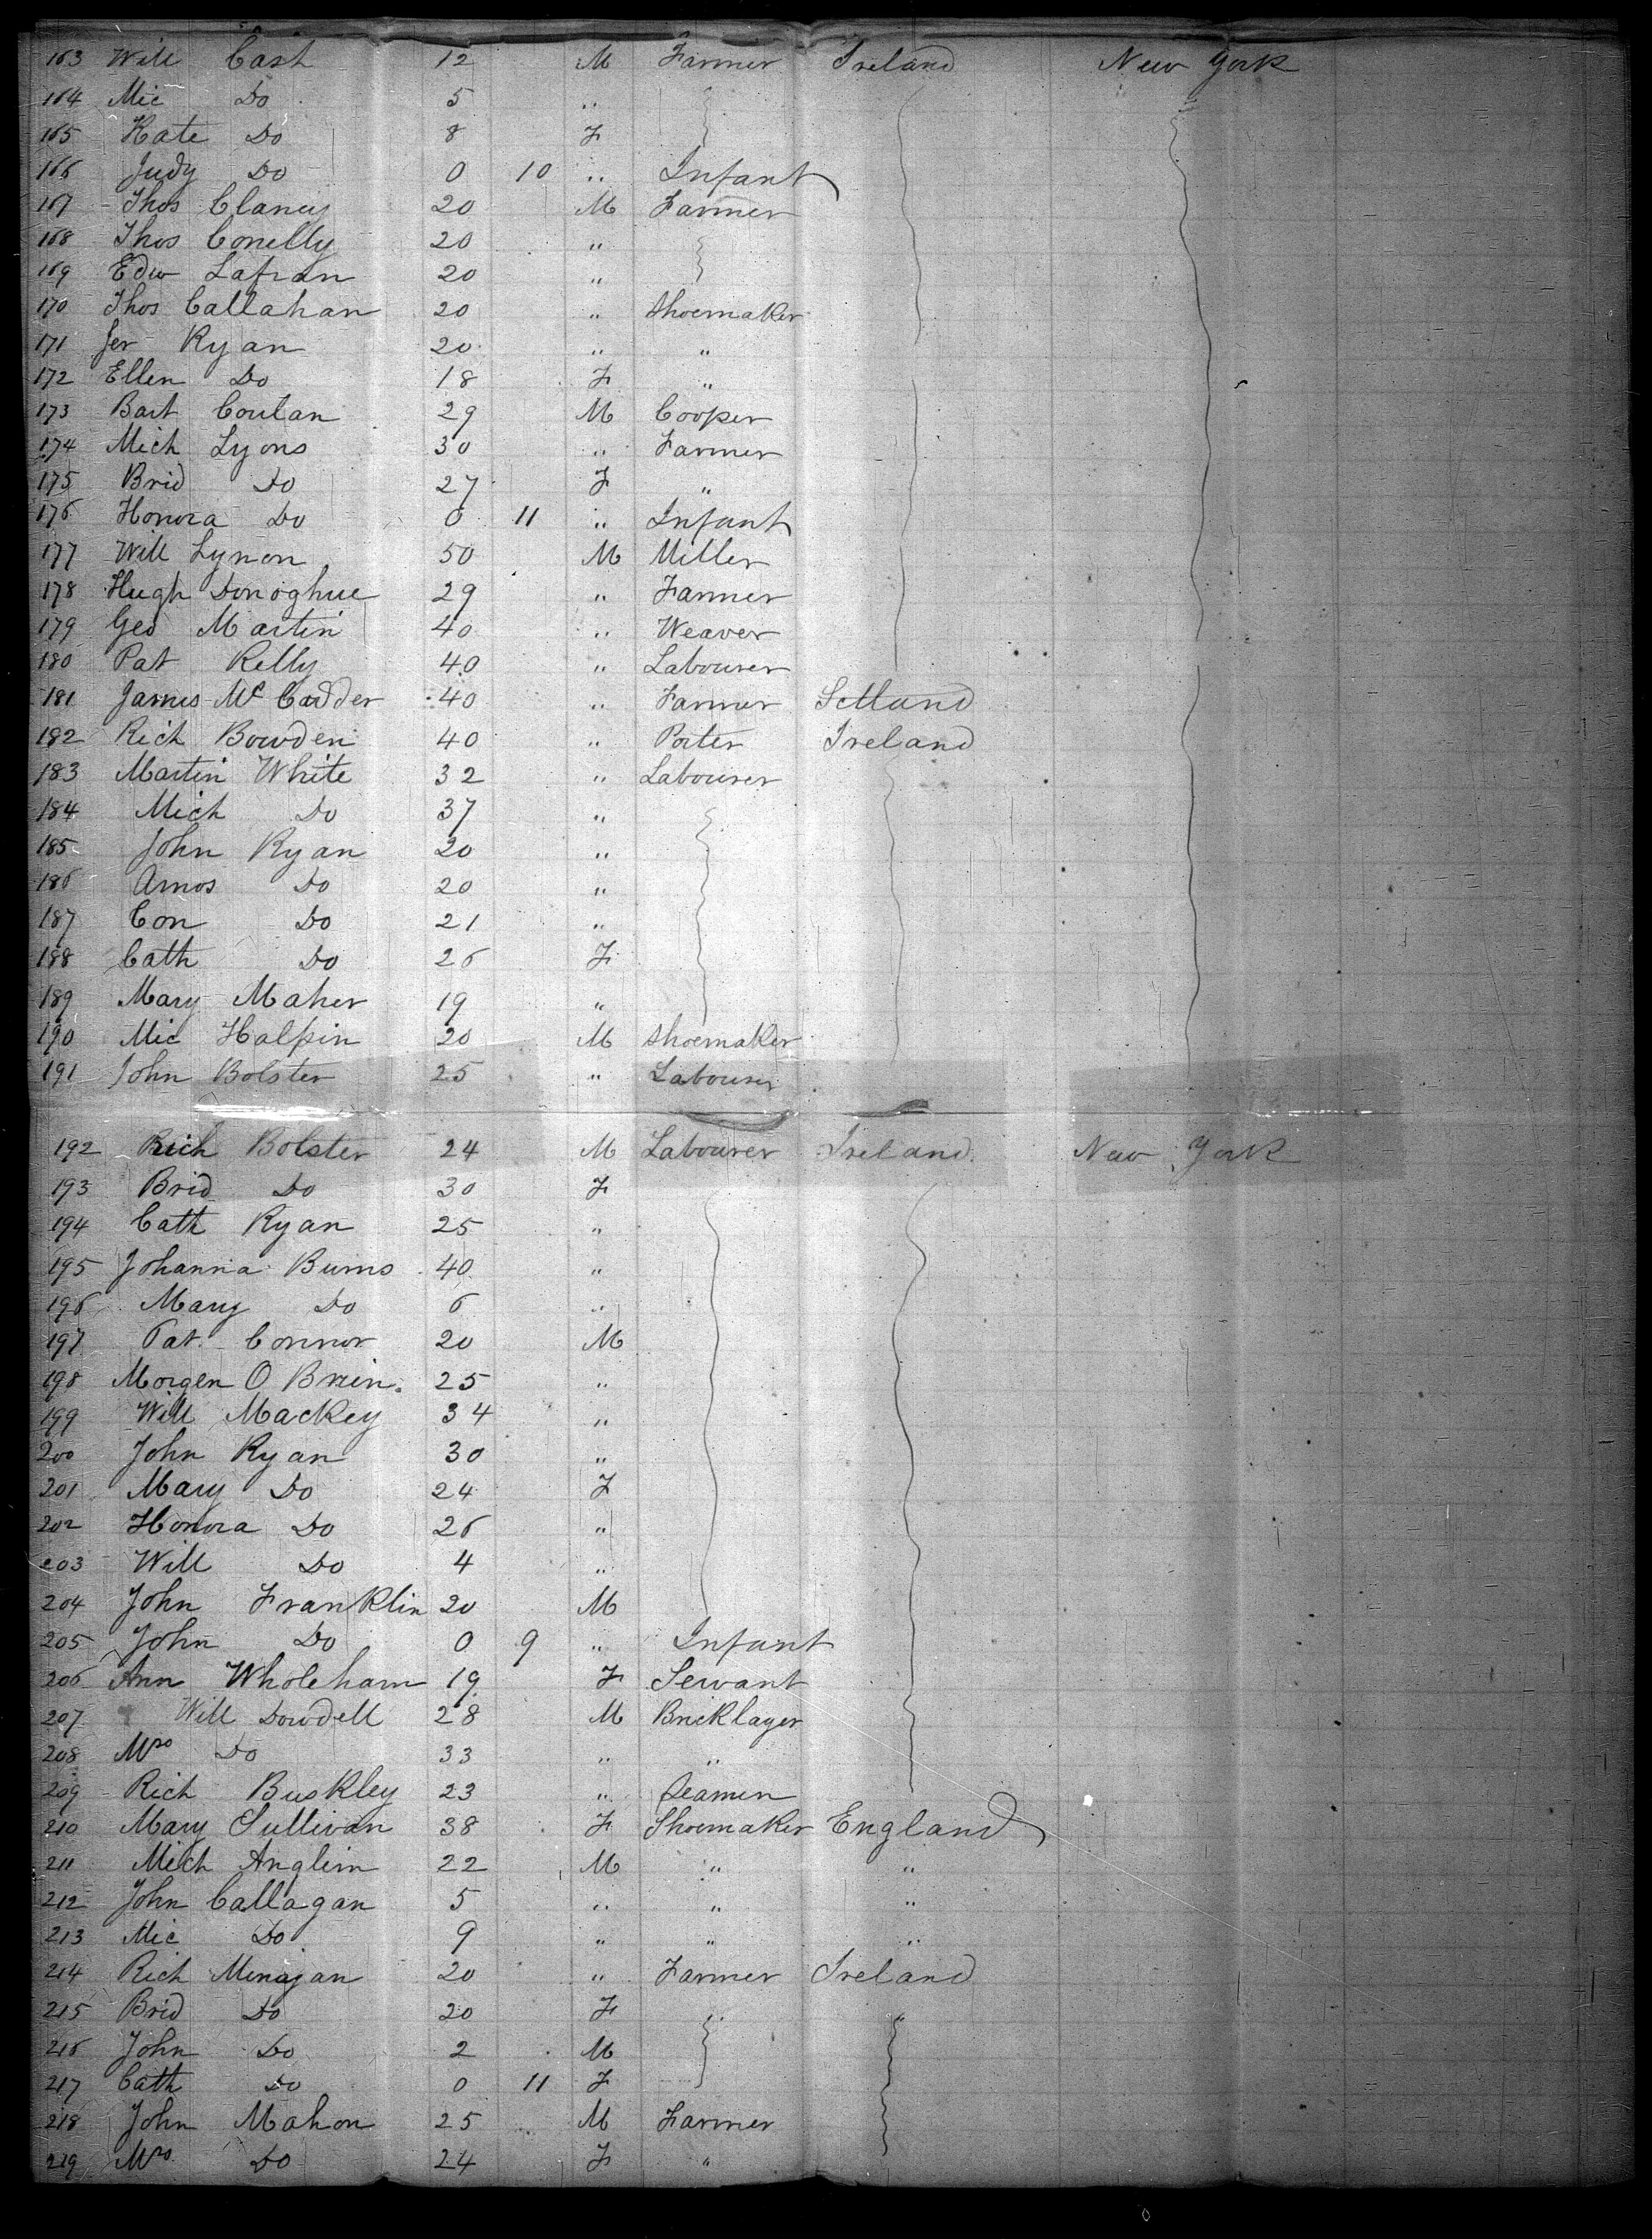 163 Will Cash 12 M Farmer Ireland New York
164 Mic Do 5 "
165 Kate Do 8 F
166 Judy Do 0 10 " Infant
167 Thos Clancy 20 M Farmer
168 Thos Conelly 20 "
169 Edw Lafran 20 "
170 Thos Callahan 20 " Shoemaker
171 Jer Ryan 20 " "
172 Ellen Do 18 F "
173 Bart Coulan 29 M Cooper
174 Mich Lyons 30 " Farmer
175 Brid Do 27 F "
176 Honora Do 0 11 " Infant
177 Will Lynon 50 M Miller
178 Hugh Donoghue 29 " Farmer
179 Geo Martin 40 " Weaver
180 Pat Kelly 40 " Labourer
181 James Mc Cadder 40 " Farmer
182 Rich Bowden 40 " Porter Ireland
183 Martin White 32 " Labourer
184 Mich Do 37 "
185 John Ryan 20 "
186 Amos Do 20 "
187 Con Do 21 "
188 Cath Do 26 F
189 Mary Maher 19 "
190 Mic Halpin 20 M Shoemaker
191 John Bolster 25 " Labourer
192 Rich Bolster 24 M Labourer Ireland New York
193 Brid Do 30 F
194 Cath Ryan 25 "
195 Johanna Burns 40 "
196 Mary Do 6 "
197 Pat Connor 20 M
198 Morgen O Brien 25 "
199 Will Mackey 34 "
200 John Ryan 30 "
201 Mary Do 24 F
202 Honora Do 26 "
203 Will Do 4 "
204 John Franklin 20 M
205 John Do 0 9 " Infant
206 Ann Wholeham 19 F Servant
207 Will Dowdell 28 M Bricklayer
208 Mrs Do 33 " "
209 Rich Buckley 23 " Seamen
210 Mary Sullivan 38 F Shoemaker England
211 Mich Anglim 22 M " "
212 John Callagan 5 " " "
213 Mic Do 9 " " "
214 Rich Minajan 20 " Farmer Ireland
215 Brid Do 20 F
216 John Do 2 M
217 Cath Do 0 11 F
218 John Mahon 25 M Farmer
219 Mrs Do 24 F "